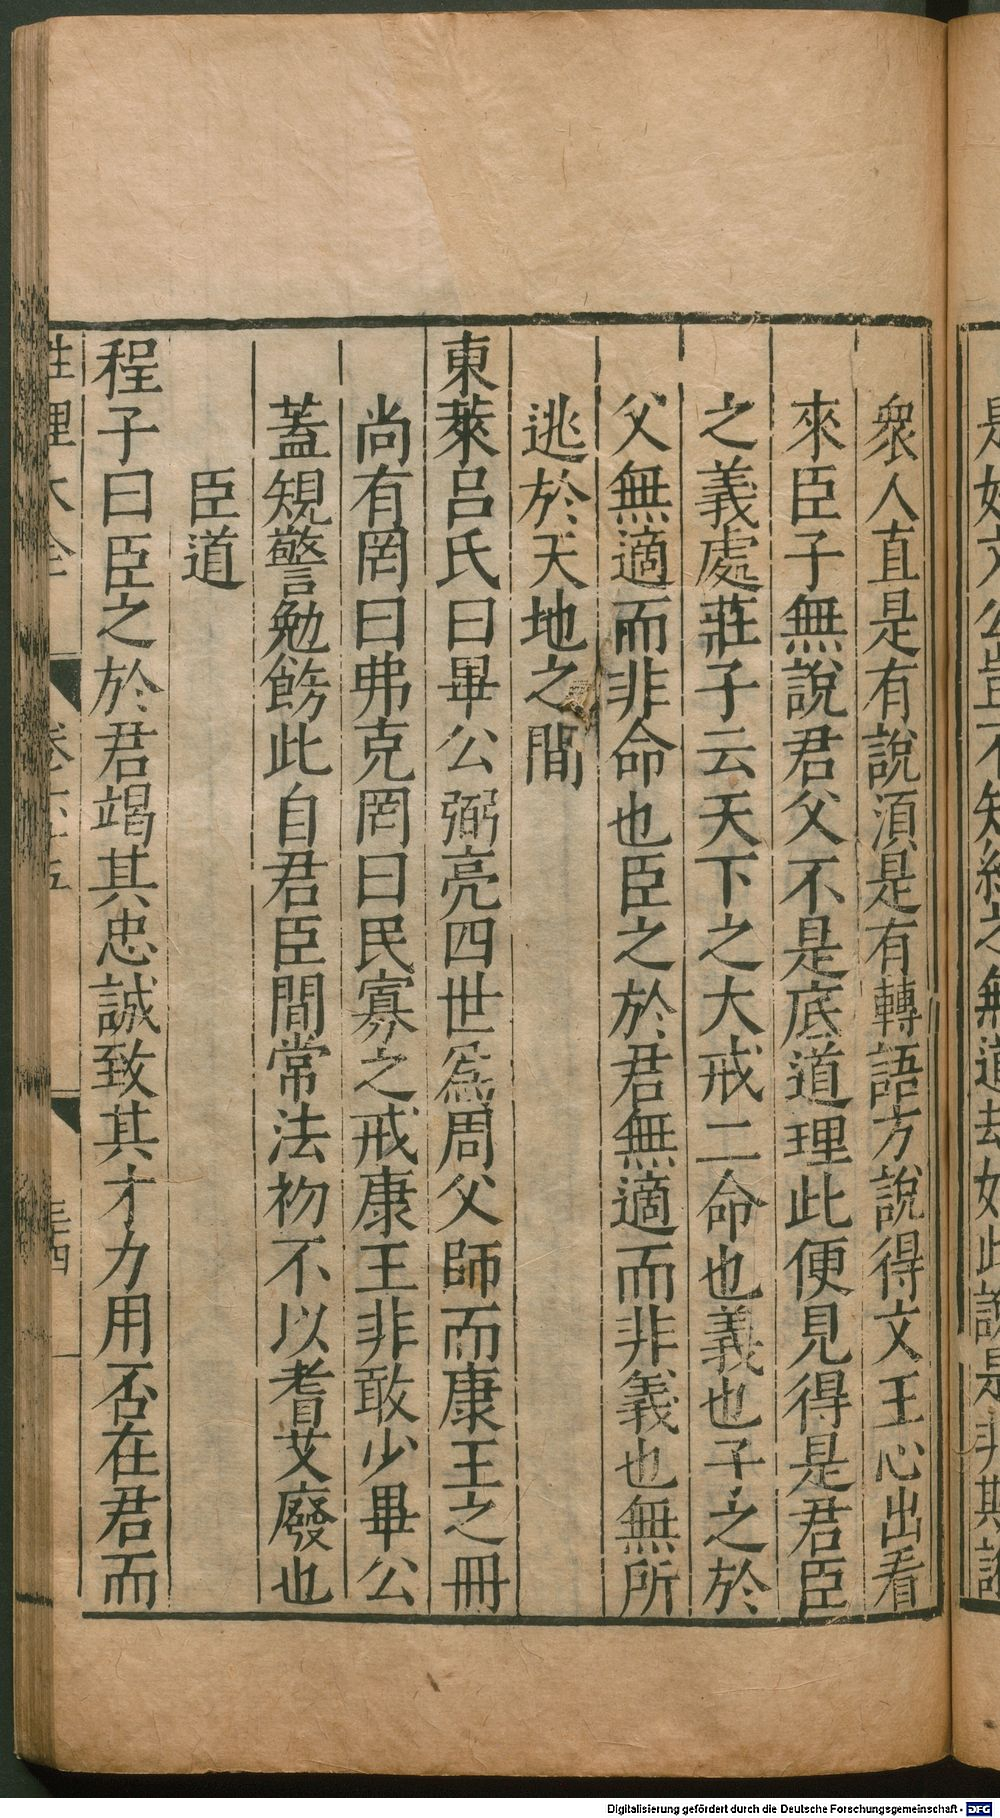 是如文公豈不知紂之無道却如此說是非欺誑
衆人直是有說須是有轉語方說得文王心出看
來臣子無說君父不是底道理此便見得是君臣
之義處莊子云天下之大戒二命也義也子之於
父無適而非命也臣之於君無適而非義也無所
逃於天地之間
東萊呂氏曰畢公弼亮四世爲周父師而康王之冊
尚有罔曰弗克罔曰民寡之戒康王非敢少畢公
蓋規警勉飭此自君臣間常法初不以耆艾廢也
臣道
程子曰臣之於君竭其忠誠致其才力用否在君而
性理大全 卷六十五 三四
Digitalisierung gefördert durch die Deutsche Forschungsgemeinschaft - DFG